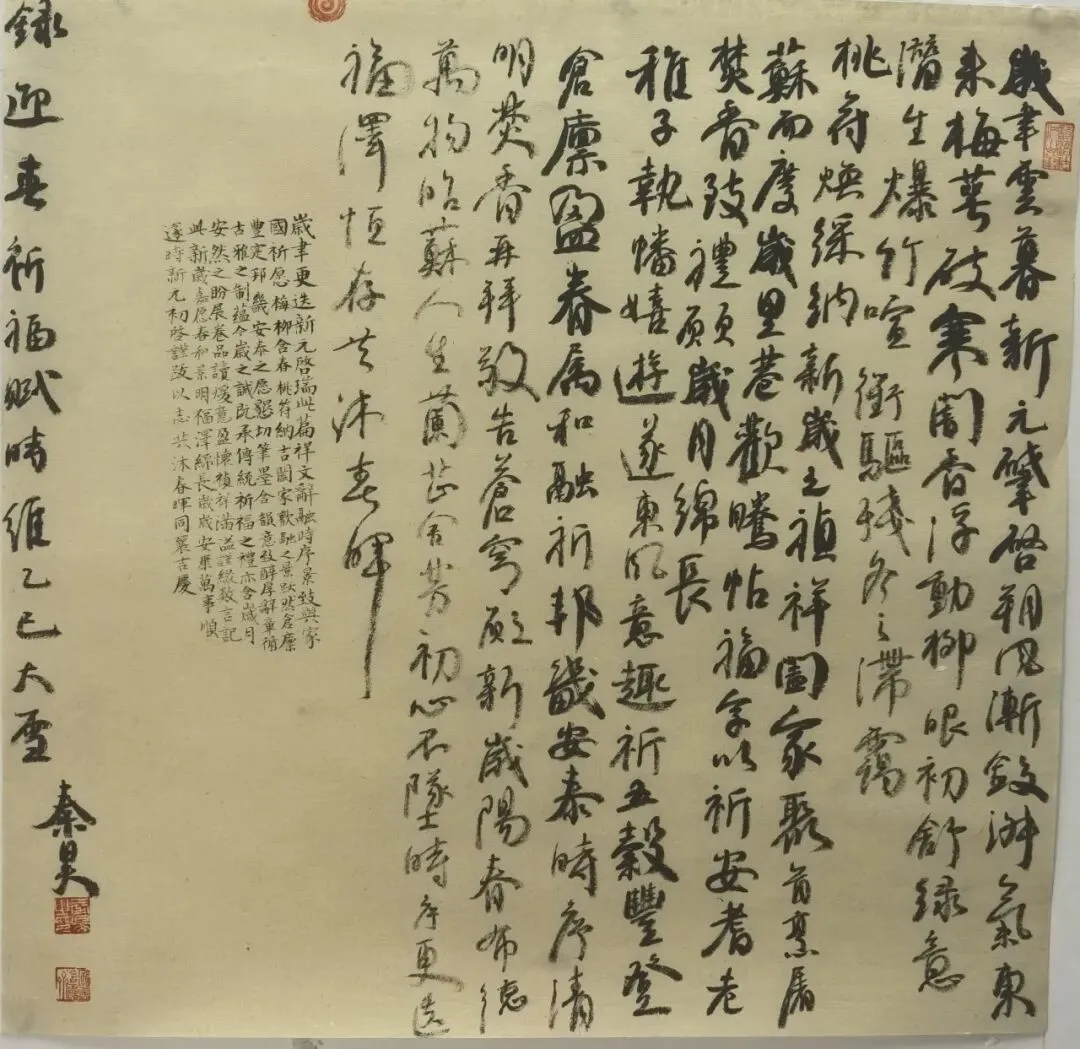 歲聿雲暮新元肇啓朔風漸斂淑氣東
來梅萼破寒闇香浮動柳眼初舒綠意
潛生爆竹喧衢驅殘冬之滯靄
桃符煥綵納新歲之禎祥闔家聚首烹屠
蘇而度歲里巷歡騰帖福字以祈安耆老
焚香致禮願歲月綿長
稚子執幡嬉遊逐東風意趣祈五穀豐登
倉廩盈眷属和融祈邦畿安泰時序清
明焚香再拜敬告蒼穹願新歲陽春布德
萬物昭蘇人生蘭芷含芳初心不墜時序更迭
福澤恒存共沐春暉
歲聿更迭新元啓瑞此篇祥文辭融時序景致與家
國祈愿梅柳含春桃符納吉闔家歡融之景躍然倉廩
豐定邦畿安泰之愿懇切筆墨含韻意致醇厚辭章循
古雅之制蘊今歲之誠既承傳統祈福之禮亦含歲月
安然之盼展卷品讀煖意盈懷禎祥滿溢謹綴數言記
此新歲嘉愿春和景明福澤綿長歲歲安樂萬事順
遂時新元初啓謹跋以志共沐春暉同襄吉慶
録迎春祈福賦時維乙巳大雪
秦昊